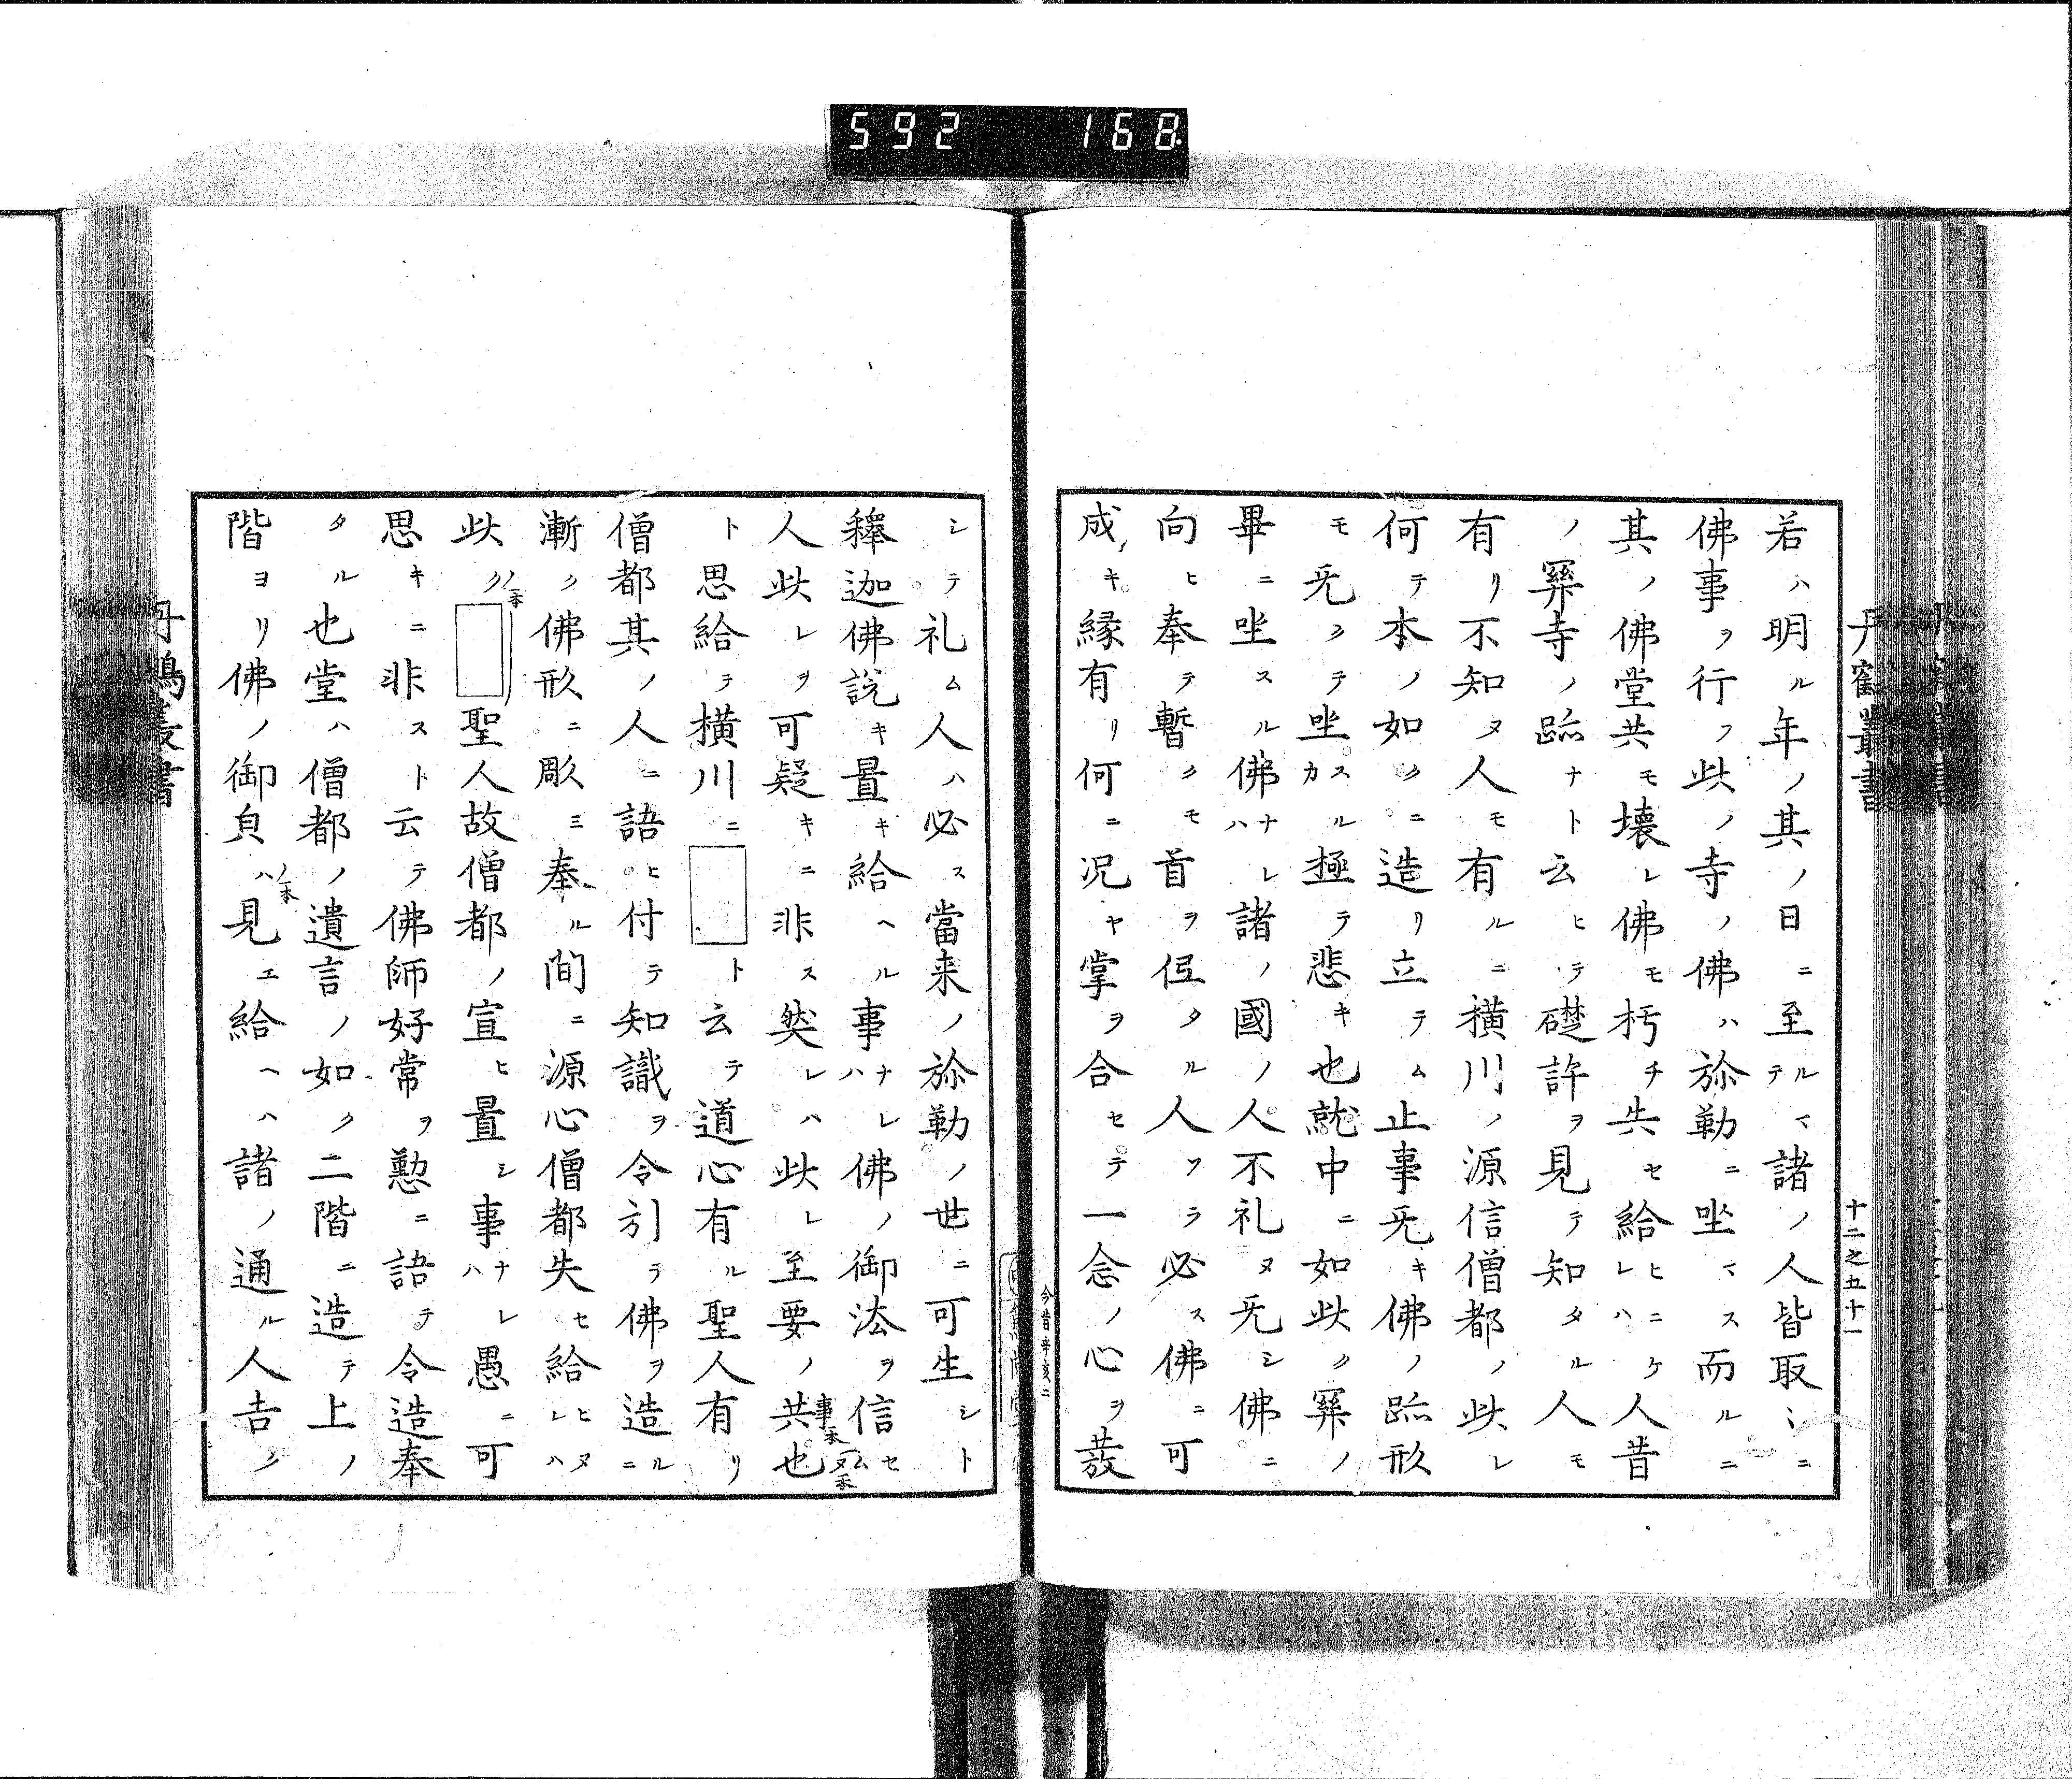 592 168
丹鶴叢書
十二之五十一
若ハ明ル年ノ其ノ日ニ至ルマテ諸ノ人皆取ミニ
佛事ヲ行フ此ノ寺ノ佛ハ弥勒ニ坐マス而ルニ
其ノ佛堂共モ壊レ佛モ朽チ失セ給ヒニケレハ人昔
ノ𦊆寺ノ跡ナト云ヒテ礎許ヲ見テ知タル人モ
有リ不知ヌ人モ有ルニ横川ノ源信僧都ノ此レ
何テ本ノ如クニ造リ立テム止事无キ佛ノ跡形
モ无クテ坐スルカ極テ悲キ也就中ニ如此ク𦊆ノ
畢ニ坐スル佛ナレハ諸ノ國ノ人不礼ヌ无シ佛ニ
向ヒ奉テ暫クモ首ヲ低タル人ソラ必ス佛ニ可
成キ縁有リ何ニ况ヤ掌ヲ合セテ一念ノ心ヲ𤼵
今昔
シテ礼ム人ハ必ス當来ノ弥勒ノ世ニ可生シト
釋迦佛説キ置キ給ヘル事ナレハ佛ノ御法ヲ信セム
人此レヲ可疑キニ非ス然レハ此レ至要ノ共事本也
ト思給テ横川ニ□ト云テ道心有ル聖人有リ
僧都其ノ人ニ語ヒ付テ知識ヲ令引テ佛ヲ造ルニ
漸ク佛形ニ彫ミ奉ル間ニ源心僧都失セ給ヒヌレハ
此ク□聖人故僧都ノ宣ヒ置シ事ナレハ愚ニ可
思キニ非スト云テ佛師好常ヲ懃ニ語テ令造奉
タル也堂ハ僧都ノ遺言ノ如ク二階ニ造テ上ノ
階ヨリ佛ノ御㒵ハ見エ給ヘハ諸ノ通ル人吉ク
丹鶴叢書